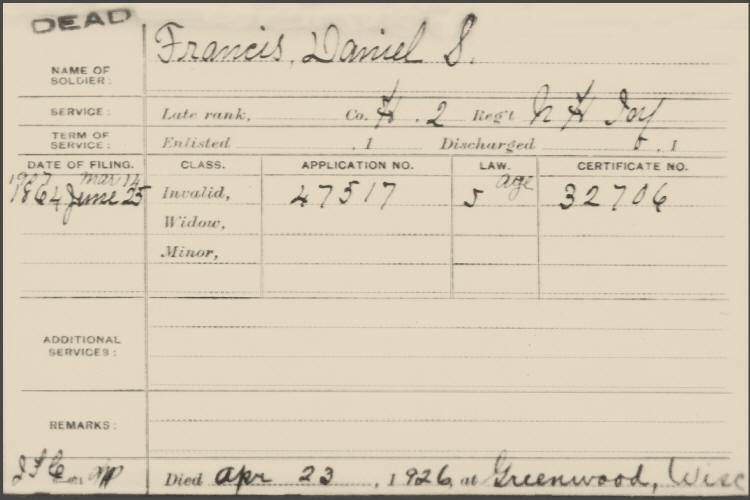 DEAD
NAME OF SOLDIER: Francis, Daniel S.
SERVICE: Late rank, Co. H. 2 Reg't N H Inf
TERM OF SERVICE: Enlisted , 1 Discharged , 1
DATE OF FILING. CLASS. APPLICATION NO. LAW. CERTIFICATE NO.
1907 Mar 14 age
1864 June 25 Invalid, 47517 5 32706
Widow,
Minor,
ADDITIONAL SERVICES:
REMARKS:
Died Apr 23, 1926, at Greenwood, Wisc